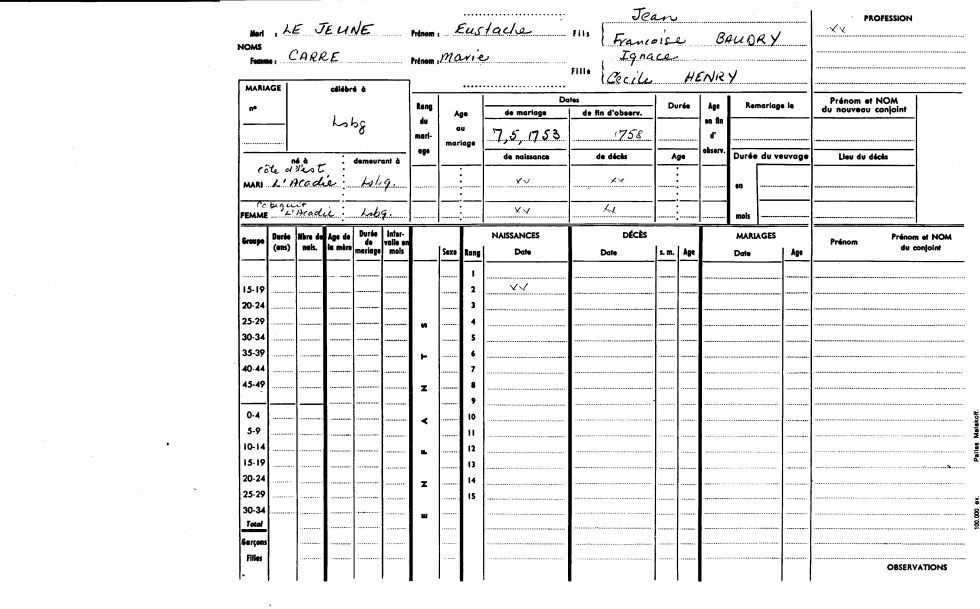 Mari : LE JEUNE Prénom : Eustache Fils Jean
Francoise BAUDRY
NOMS
Femme : CARRE Prénom : Marie Fille Ignace
Cecile HENRY
PROFESSION
XX
MARIAGE célébré à
n° Lsbg
né à demeurant à
côte d'est
MARI L'Acadie Lsbg.
FEMME L'Acadie Lsbg.
Rang du mari- age
Age au mariage
Dates
de mariage de fin d'observ.
7,5,1753 1758
de naissance de décès
XX XX
XX
Durée
Age
Age en fin d' observ.
Remariage le
Durée du veuvage
en
mois
Prénom et NOM du nouveau conjoint
Lieu du décès
Groupe Durée (ans) Nbre de nais. Age de la mère Durée de mariage Inter- valle en mois Sexe Rang
NAISSANCES DÉCÈS MARIAGES
Date Date s. m. Age Date Age Prénom Prénom et NOM du conjoint
1
15-19 2 XX
20-24 3
25-29 4
30-34 5
35-39 6
40-44 7
45-49 8
9
0-4 10
5-9 11
10-14 12
15-19 13
20-24 14
25-29 15
30-34
Total
Garçons
Filles
ENFANTS
OBSERVATIONS
100.000 ex. Pallas Malakoff.